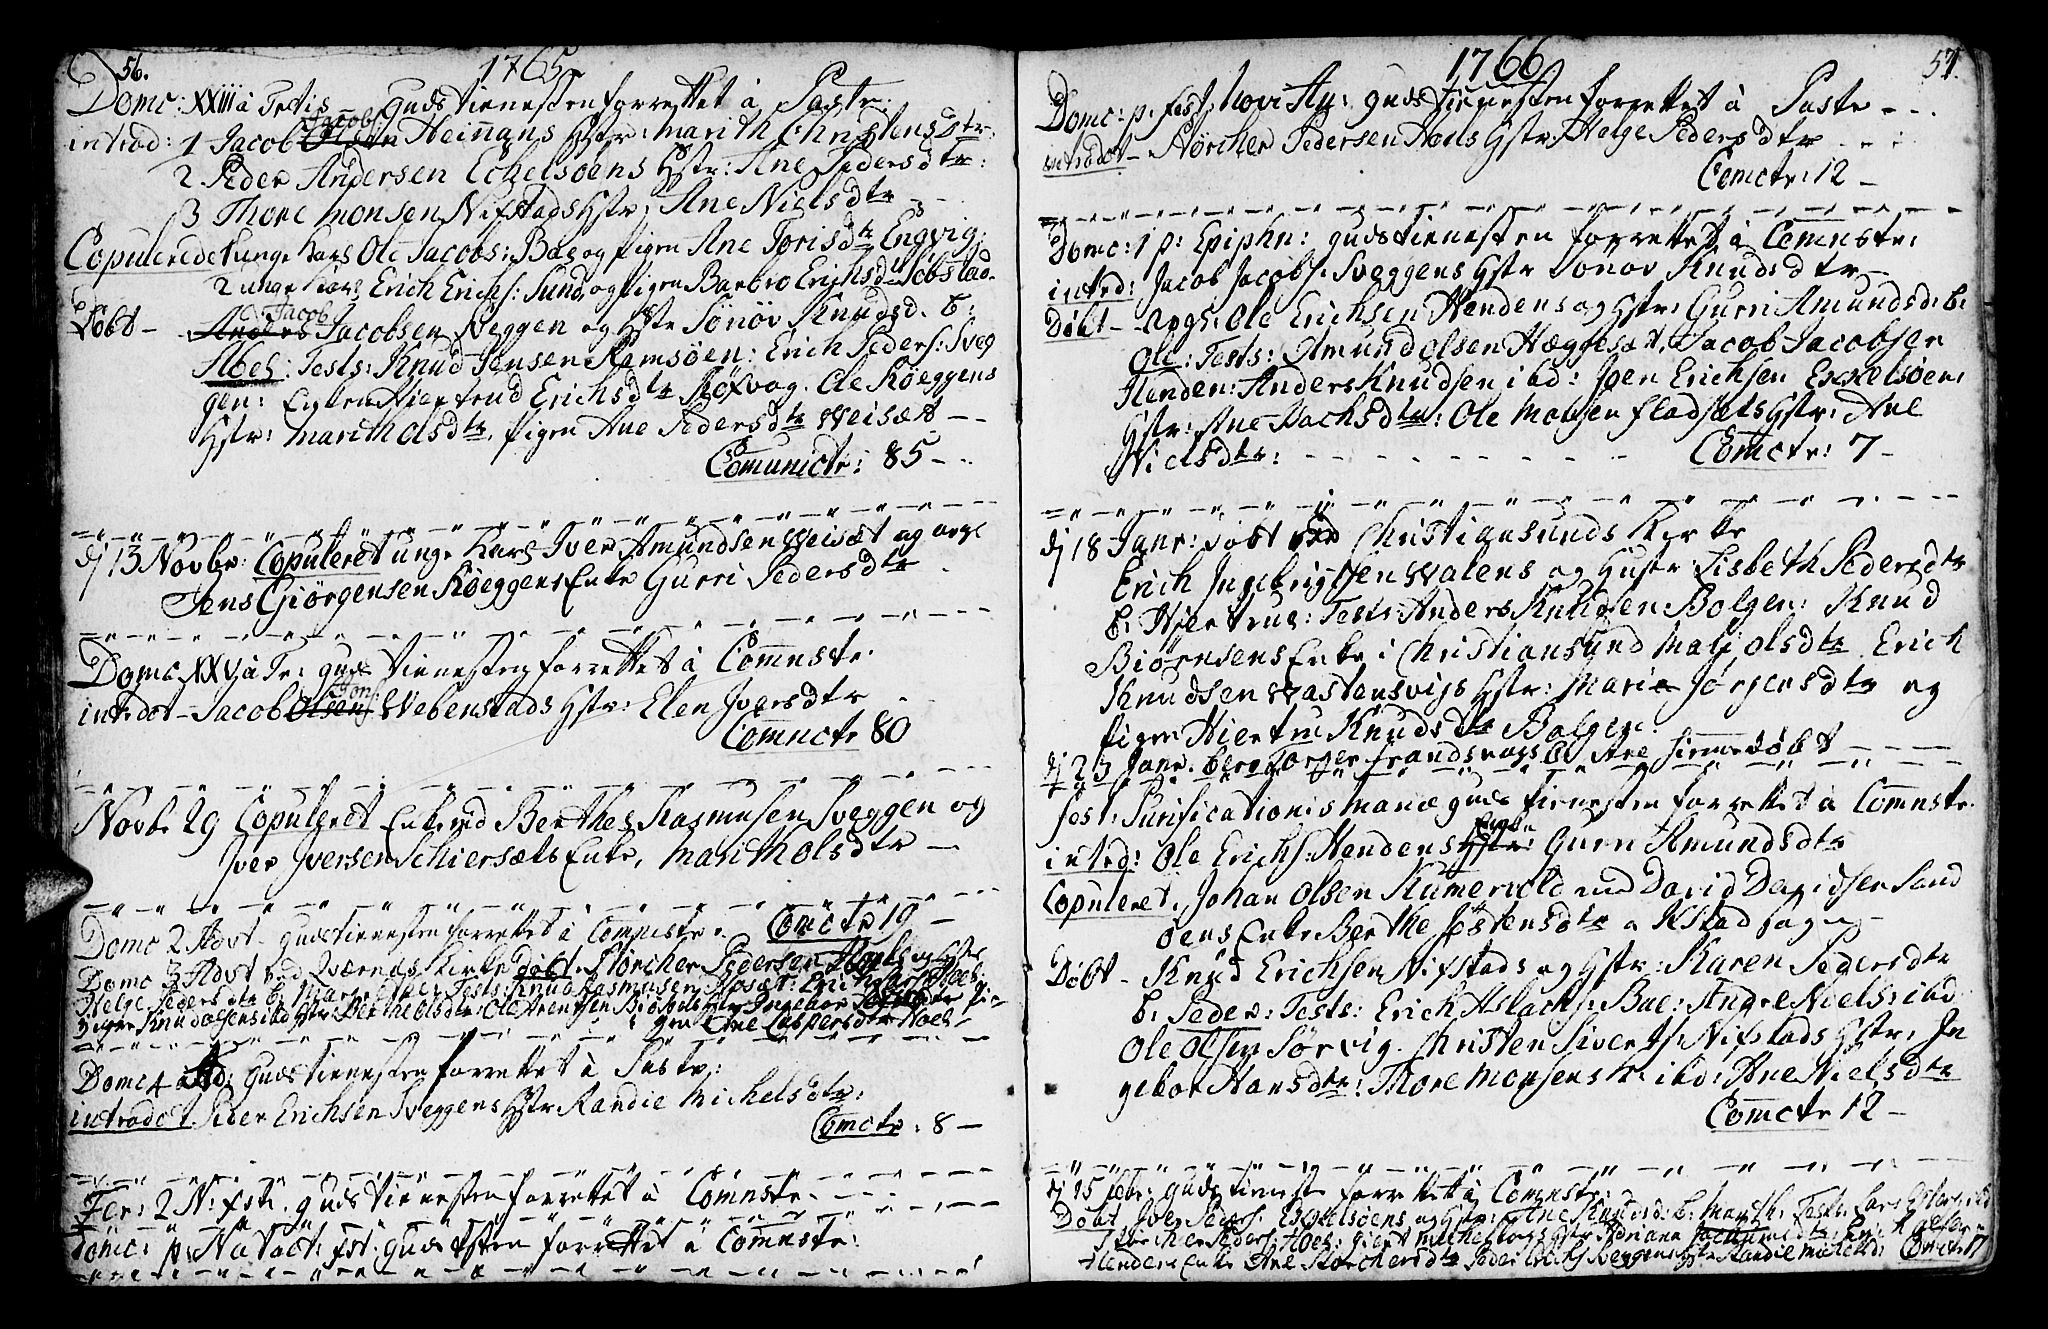 56.
1765
Domc: XXIII à Trtis Gudstienesten forrettet à Pastr:
introd: 1 Jacob Jacobs: Heinnans Hstr: Marith ChristensDtr:
2 Peder Andersen Eckelsøens Hstr: Ane Pedersdtr:
3 Thore Monsen Nifstads Hstr: Ane Nielsdtr
Copuleredet 1 unge Kars Ole Jacobs: Bae og Pigen Ane Torisdtr Engvig.
2 unge Kars Erich Erichs: Sund og Pigen Barbro Erichsd
Døbt – Jacob Jacobsen Sveggen og Hstr Sønøv Knudsd. b:
Abel: Tests: Knud Jensen Ramsøen: Erich Peders: Sveg
gen: Enken Hiertrud Erichsdtr Røsvog. Ole Røeggens
Hstr: Marith Olsdtr, Pigen Ane Pedersdtr Weisæt –
Comunictr: 85 –
dj 13 Novbr: Copuleret unge Kars Iver Amundsen Weisæt og
Jens Giørgensen Røeggens Enke Gurri Pedersdtr
Domc XXV à Tr: Guds tienesten forrettet à Comnstr.
introdct – Jacob Webenstads Hstr: Elen Iversdtr
Comnctr 80
Novbr 29 Copuleret Enkemd Berthes Rasmusen Sveggen og
Iver Iversen Schiersæts Enke, Marith Olsdtr –
Domc 2 Advt – Gudstienesten forrettet à Comnstr. Comctr 19 –
Domc 3 Advt ved Qværnæs Kirke døbt Størcher Pedersen Hoels og Hstr
Helge Pedersdtr b: Tests: Knud Rasmusen
Knud Olsens ibd Hstr: Berthe Olsdtr: Ole Arentsen Hstr Ingebor
gen Ane Caspersdtr Hoel
Domc 4 Ad: Gudstienesten forrettet à Pastr:
introdct Peder Erichsen Sveggens Hstr Randie Michelsdtr:
Comctr: 8 –
Fer: 2 N: fstr. Guds tienesten forrettet à Comnstr.
Domc: p: Natact: fst: Gudststen forrettet à Comnstr:
57.
1766
Domc: p. fest: Novi An: Gudstienesten forrettet à Pastr
introdct – Størcher Pedersen Hoels Hstr: Helge Pedersdtr
Comctr: 12 –
Domc: 1 p: Epiphn: Gudstienesten forrettet à Comnstr:
intrd: Jacob Jacobs: Sveggens Hstr Sønøv Knudsdtr
Døbt – Ole Erichsen Hendens og Hstr: Gurri Amundsd: b:
Ole: Tests: Amund Olsen Hæggesæt, Jacob Jacobsen
Henden: Anders Knudsen ibd: Joen Erichsen Exkelsøens
Hstr: Ane Isachsdtr: Ole Monsen Fladsæts Hstr: Ane
Nielsdtr: Comctr: 7 –
dj 18 Janr: døbt ved Christiansunds Kircke
Erich Ingebrigtsen Walens og Hustr: Lisbeth Pedersdtr
b: Hiertrud: Tests: Anders Knudsen Bolgen: Knud
Biørnsens Enke i Christiansund Marj Olsdtr. Erich
Knudsen Wastensvigs Hstr: Marie Jørgensdtr og
Pigen Hiertru Knudsdtr Bolgen.
dj 23 Janr. Ane hiemedøbt
Fest: Purificationis Mariæ Guds tienesten forrettet à Comnstr.
intrd: Ole Erichs: Hendens Hstr: Gurri Amundsdtr
Copuleret: Johan Olsen Kumervold med David Davidsen Sand
øens Enke Berthe Jostensdtr
Døbt – Knud Erichsen Nifstads og Hstr: Karen Pedersdtr
b: Peder: Tests: Erich Aslachs: Bae: Andre Niels: ibd
Ole Olsen Sørvig. Christen Sivertss: Nifstads Hstr: In
gebor Hansdtr: Thore Monsens Hstr: ibd: Ane Nielsdtr
Comctr 12 –
dj 15 Febr: Guds tieneste forrettet à Comnstr:
Døbt Iver Peders: Exkelsøens og Hstr: Ane Knudsd: b: Marith: Tests:
Størcher Peders: Hoel:
Hendens Enke Ane Størchersdtr Peder Erichs Sveggens Hstr Randie Michelsd: Comctr